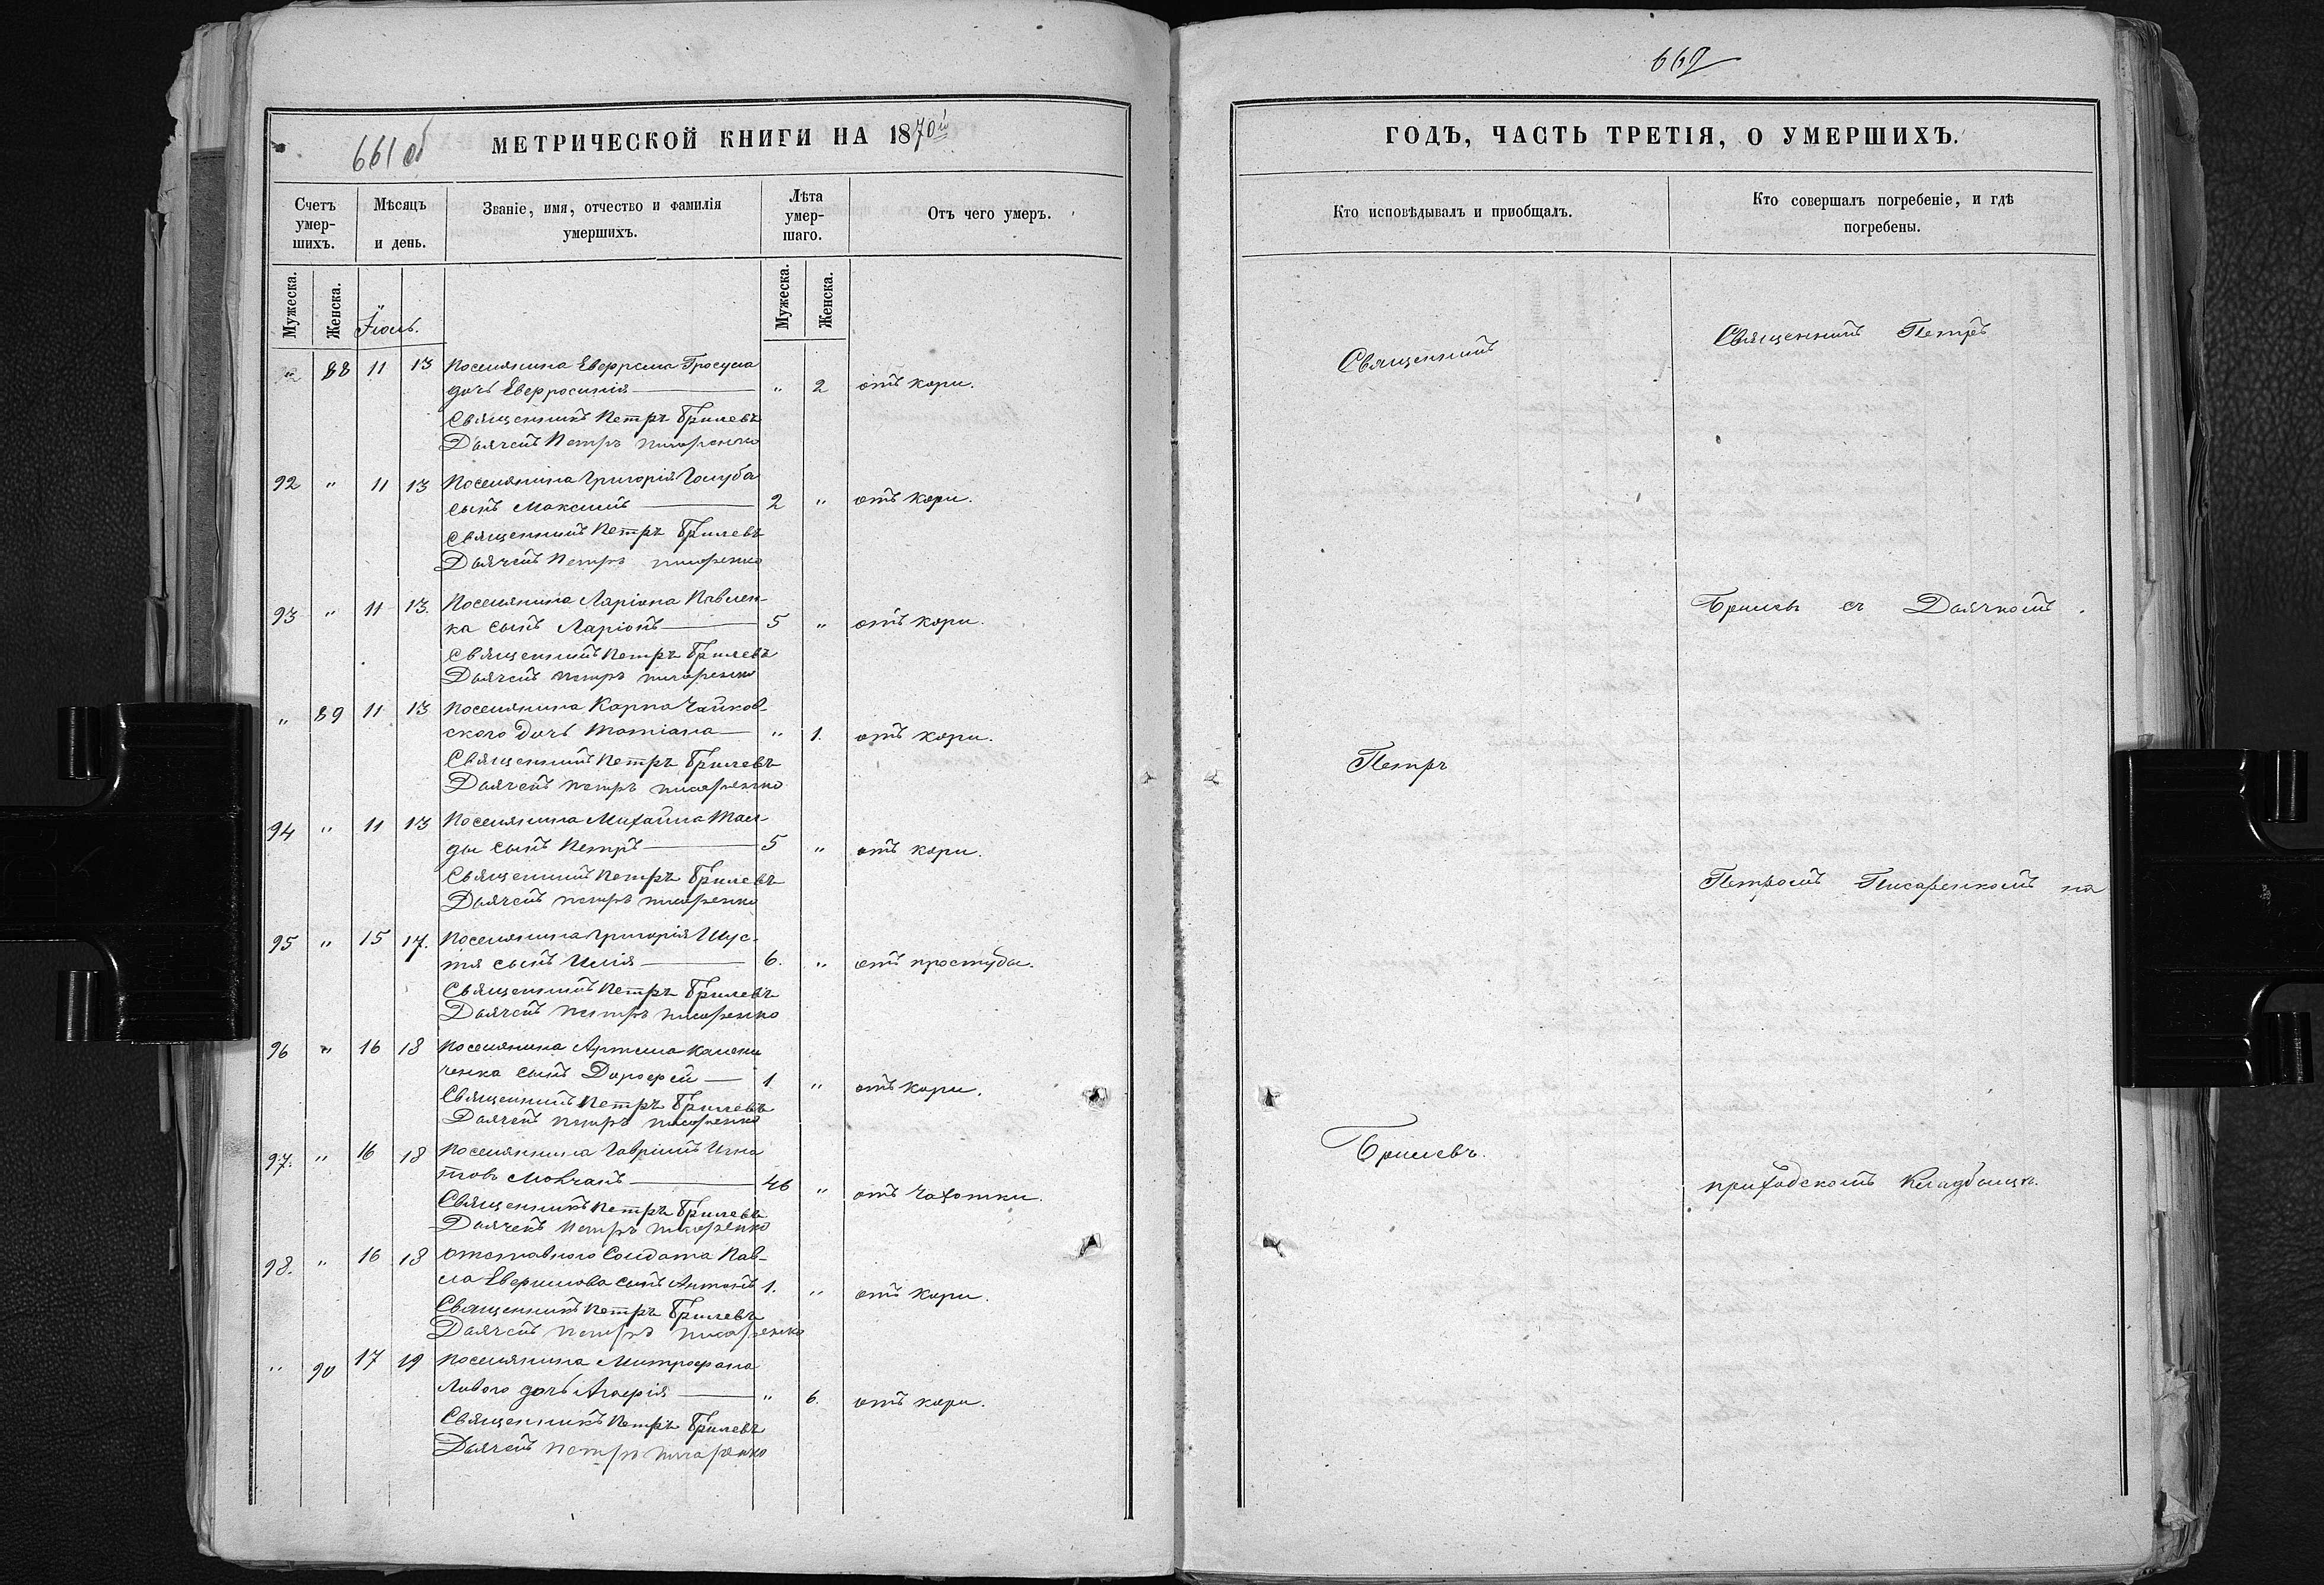 661 об
МЕТРИЧЕСКОЙ КНИГИ НА 1870й
Счетъ умер-шихъ.
Мѣсяцъ и день.
Званіе, имя, отчество и фамилія умершихъ.
Лѣта умер-шаго.
Отъ чего умеръ.
Мужеска.
Женска.
Іюль.
Мужеска.
Женска.
" 88 11 13 Поселянина Евфрема Гросула
дочь Евфросинія " 2 отъ кори.
Священникъ Петръ Брилевъ
Дьячекъ Петръ Писаренко
92 " 11 13 Поселянина Григорія Голуба
сынъ Максимъ 2 " отъ кори.
Священникъ Петръ Брилевъ
Дьячекъ Петръ Писаренко
93 " 11 13. Поселянина Ларіона Павлен-
ка сынъ Ларіонъ 5 " отъ кори.
Священникъ Петръ Брилевъ
Дьячекъ Петръ Писаренко
" 89 11 13 Поселянина Карпа Чайков-
ского дочь Татіана " 1. отъ кори.
Священникъ Петръ Брилевъ
Дьячекъ Петръ Писаренко
94 " 11 13 Поселянина Михаила
ды сынъ Петръ 5 " отъ кори.
Священникъ Петръ Брилевъ
Дьячекъ Петръ Писаренко
95 " 15 17. Поселянина Григорія Шус-
тя сынъ Илія 6. " отъ простуды.
Священникъ Петръ Брилевъ
Дьячекъ Петръ Писаренко
96 " 16 18 Поселянина Артема
ченка сынъ Дорофей 1 " отъ кори.
Священникъ Петръ Брилевъ
Дьячекъ Петръ Писаренко
97. " 16 18 Поселянинъ Гавріилъ Игна
товъ Мовчанъ 46 " отъ чахотки.
Священникъ Петръ Брилевъ
Дьячекъ Петръ Писаренко
98. " 16 18 Отставного Солдата Пав-
ла Евфимова сынъ Антонъ 1. " отъ кори.
Священникъ Петръ Брилевъ
Дьячекъ Петръ Писаренко
" 90 17 19 Поселянина Митрофана
дочь Агафія " 6. отъ кори.
Священникъ Петръ Брилевъ
Дьячекъ Петръ Писаренко
662
ГОДЪ, ЧАСТЬ ТРЕТІЯ, О УМЕРШИХЪ.
Кто исповѣдывалъ и приобщалъ.
Кто совершалъ погребеніе, и гдѣ
погребены.
Священникъ
Петръ
Брилевъ.
Священникъ Петръ
Брилевъ съ Дьячкомъ
Петромъ Писаренкомъ на
приходскомъ кладбищѣ.